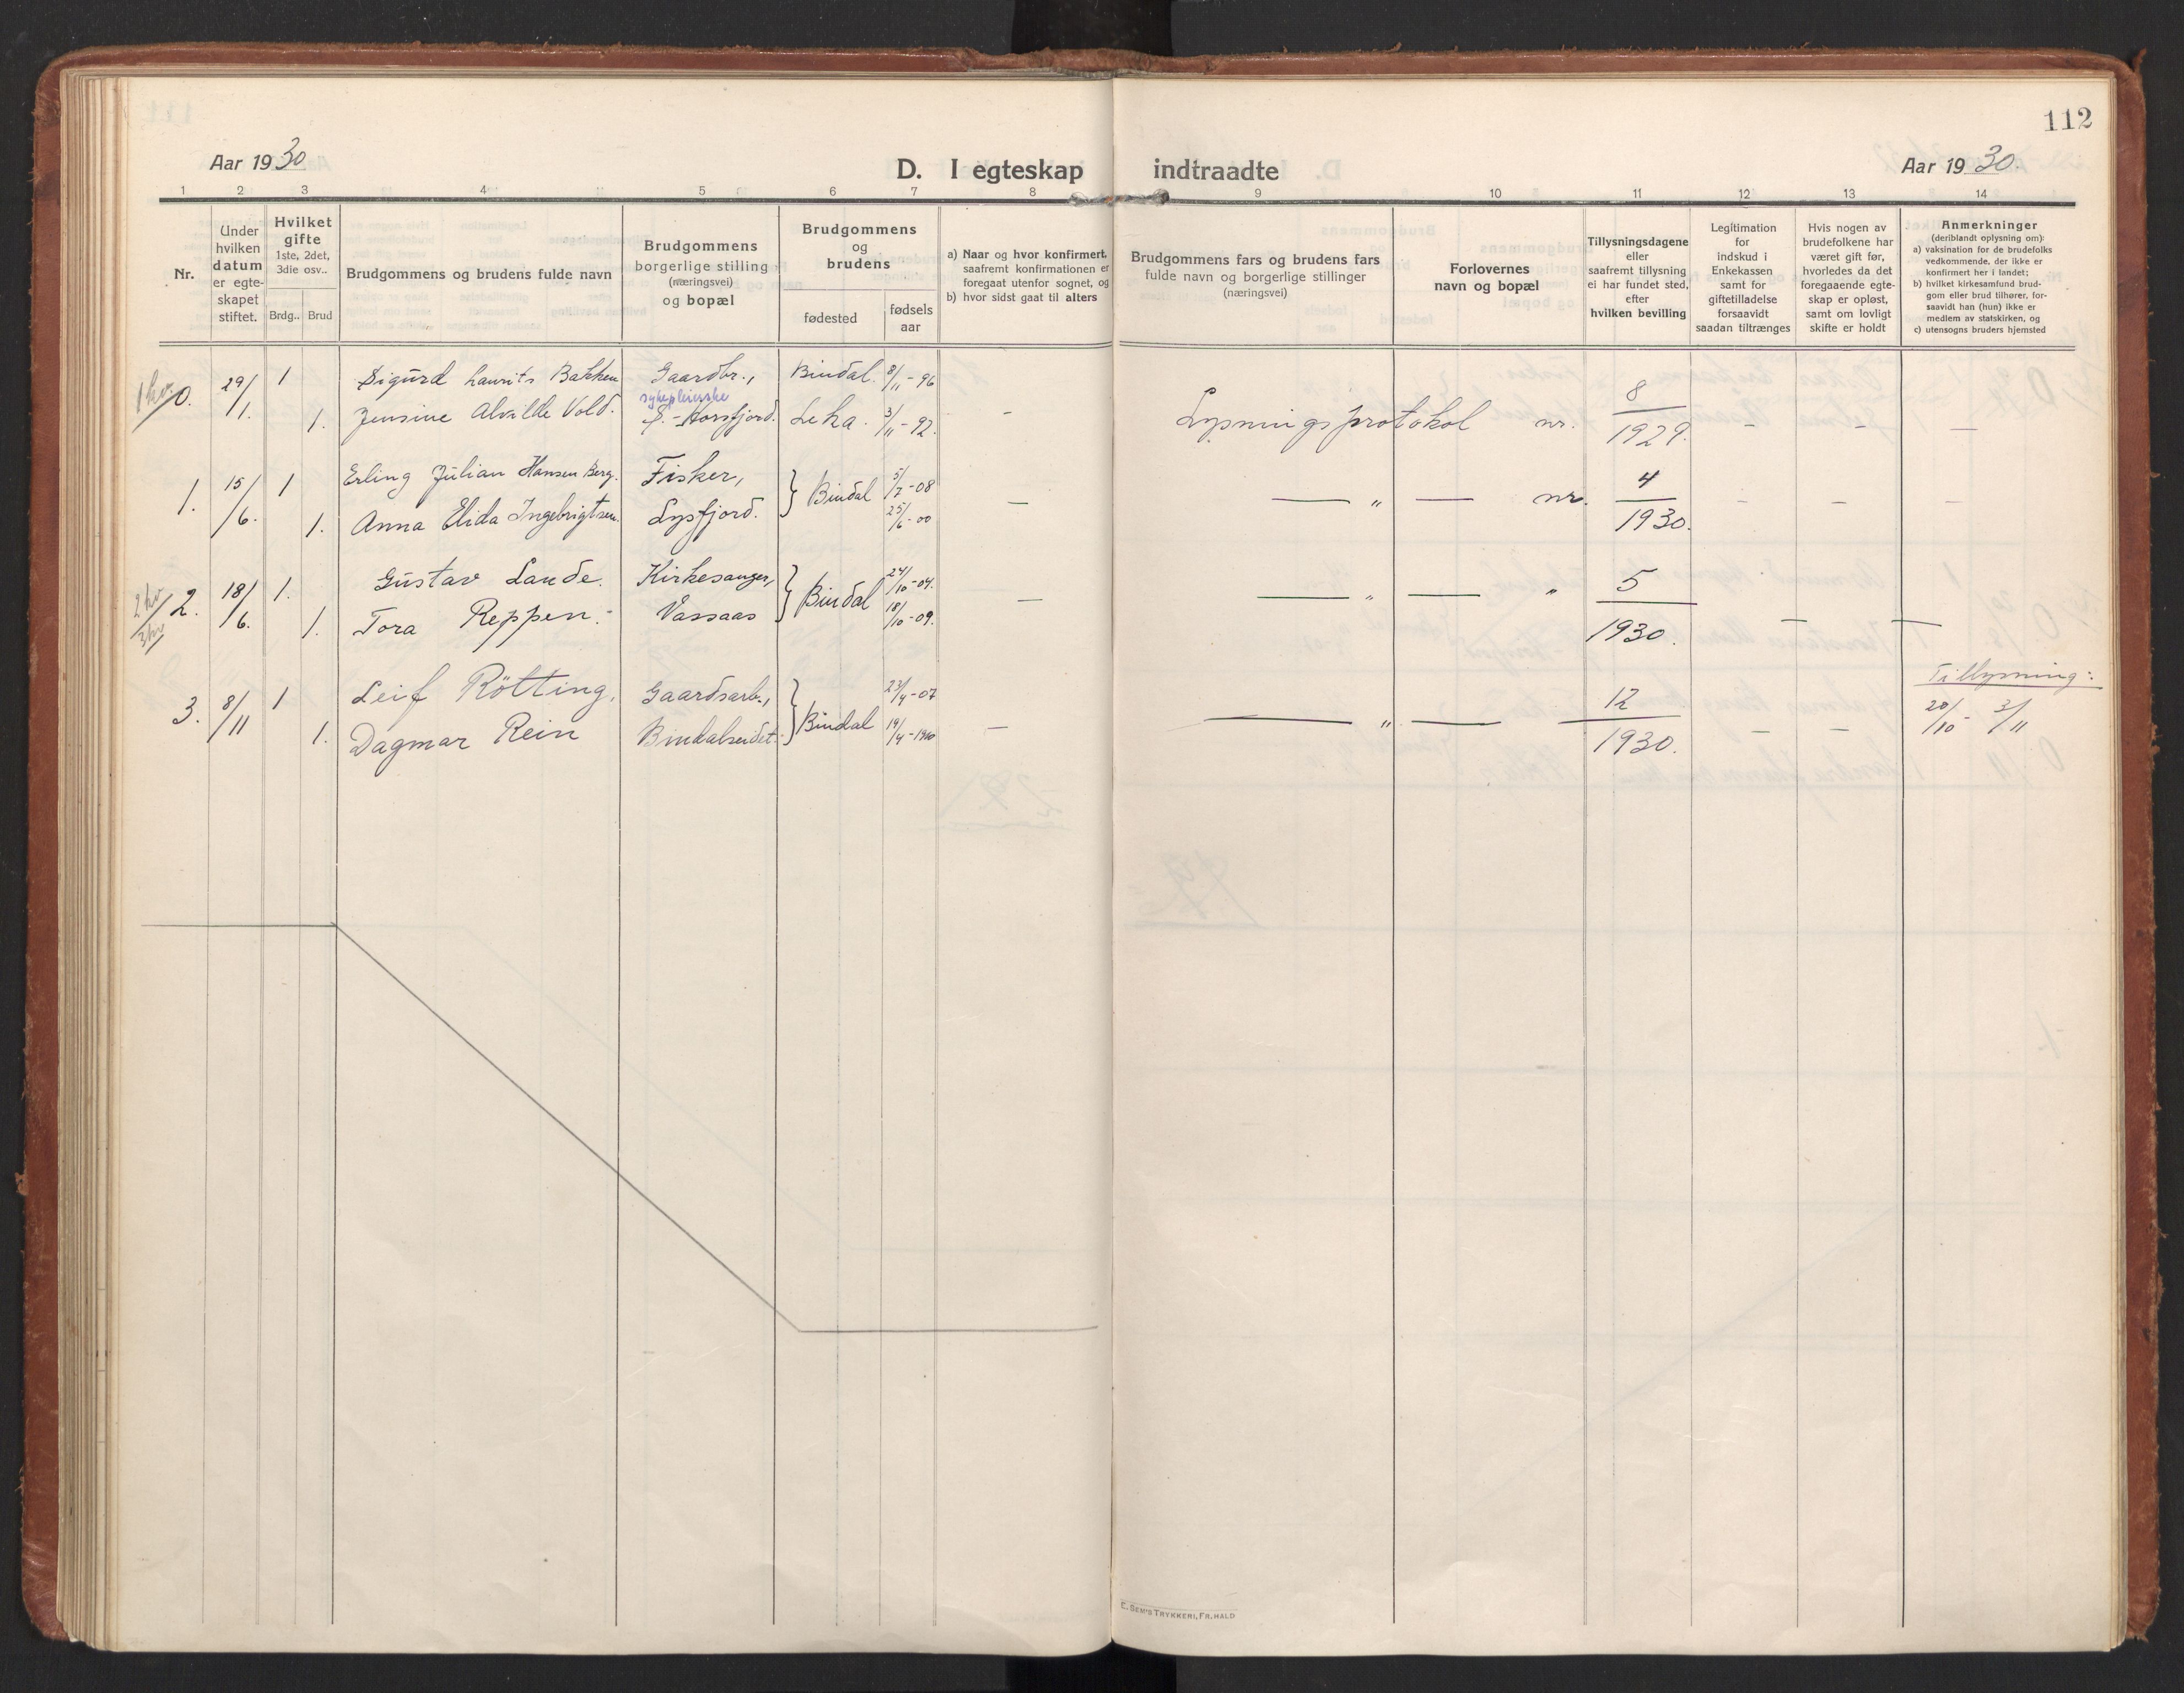 112
Aar 1930
D. I egteskap indtraadte
Aar 1930.
1 2 3 4 5 6 7 8 9 10 11 12 13 14
Nr.
Under
hvilken
datum
er egte-
skapet
stiftet.
Hvilket
gifte
1ste, 2det,
3die osv..
Brdg.. Brud
Brudgommens og brudens fulde navn
Brudgommens
borgerlige stilling
(næringsvei)
og bopæl
Brudgommens
og
brudens
fødested
fødsels
aar
a) Naar og hvor konfirmert,
saafremt konfirmationen er
foregaat utenfor sognet, og
b) hvor sidst gaat til alters
Brudgommens fars og brudens fars
fulde navn og borgerlige stillinger
(næringsvei)
Forlovernes
navn og bopæl
Tillysningsdagene
eller
saafremt tillysning
ei har fundet sted,
efter
hvilken bevilling
Legitimation
for
indskud i
Enkekassen
samt for
giftetilladelse
forsaavidt
saadan tiltrænges
Hvis nogen av
brudefolkene har
været gift før,
hvorledes da det
foregaaende egte-
skap er opløst,
samt om lovligt
skifte er holdt
Anmerkninger
(deriblandt oplysning om):
a) vaksination for de brudefolks
vedkommende, der ikke er
konfirmert her i landet;
b) hvilket kirkesamfund brud-
gom eller brud tilhører, for-
saavidt han (hun) ikke er
medlem av statskirken, og
c) utensogns bruders hjemsted
1 kv. 0. 29/1. 1 Sigurd Laurits Bakken Gaardbr., Bindal. 8/11-96
sykepleierske
1. Jensine Alvilde Vold. S.-Horsfjord. Leka. 3/11-92. - Lysningsprotokol nr. 8/1929. - - -
1. 15/6. 1 Erling Julian Hansen Berg. Fisker, } Bindal 5/7-08
1. Anna Elida Ingebrigtsen. Lysfjord. 25/6-00 - — " — nr. 4/1930. - - -
2 kv 3 kv 2. 18/6. 1. Gustav Lande. Kirkesanger, } Bindal 24/10-04.
1. Tora Reppen. Vassaas 18/10-09. - — " — " 5/1930. - -
3. 8/11 1 Leif Rötting, Gaardsarb., } Bindal 23/4-07
1. Dagmar Rein Bindalseidet. 19/4-1910 - — " — 12/1930. - - Tillysning:
20/10 - 3/11
E. SEM'S TRYKKERI, FR.HALD